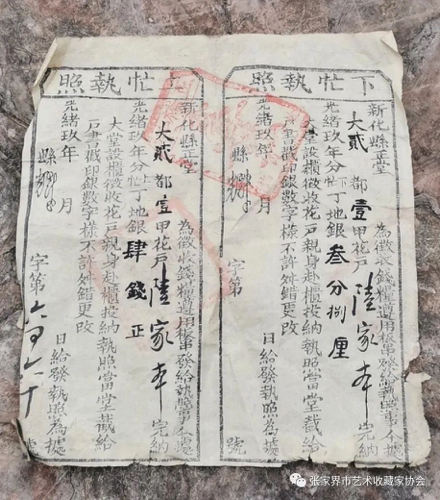 下忙執照
新化縣正堂 為徵收錢糧遵用板串發給執照事今據
大貳都壹甲花戶陸家本完納
光緒玖年分下忙丁地銀叁分捌厘
大堂設櫃徵收花戶親身赴櫃投納執照當堂截給
戶書戳印銀數字樣不許舛錯更改
光緒玖年 月 日給發執照為據
縣
字第 號
上忙執照
新化縣正堂 為徵收錢糧遵用板串發給執照事今據
大貳都壹甲花戶陸家本完納
光緒玖年分上忙丁地銀肆錢正
大堂設櫃徵收花戶親身赴櫃投納執照當堂截給
戶書戳印銀數字樣不許舛錯更改
光緒玖年 月 日給發執照為據
縣
字第 號
张家界市艺术收藏家协会